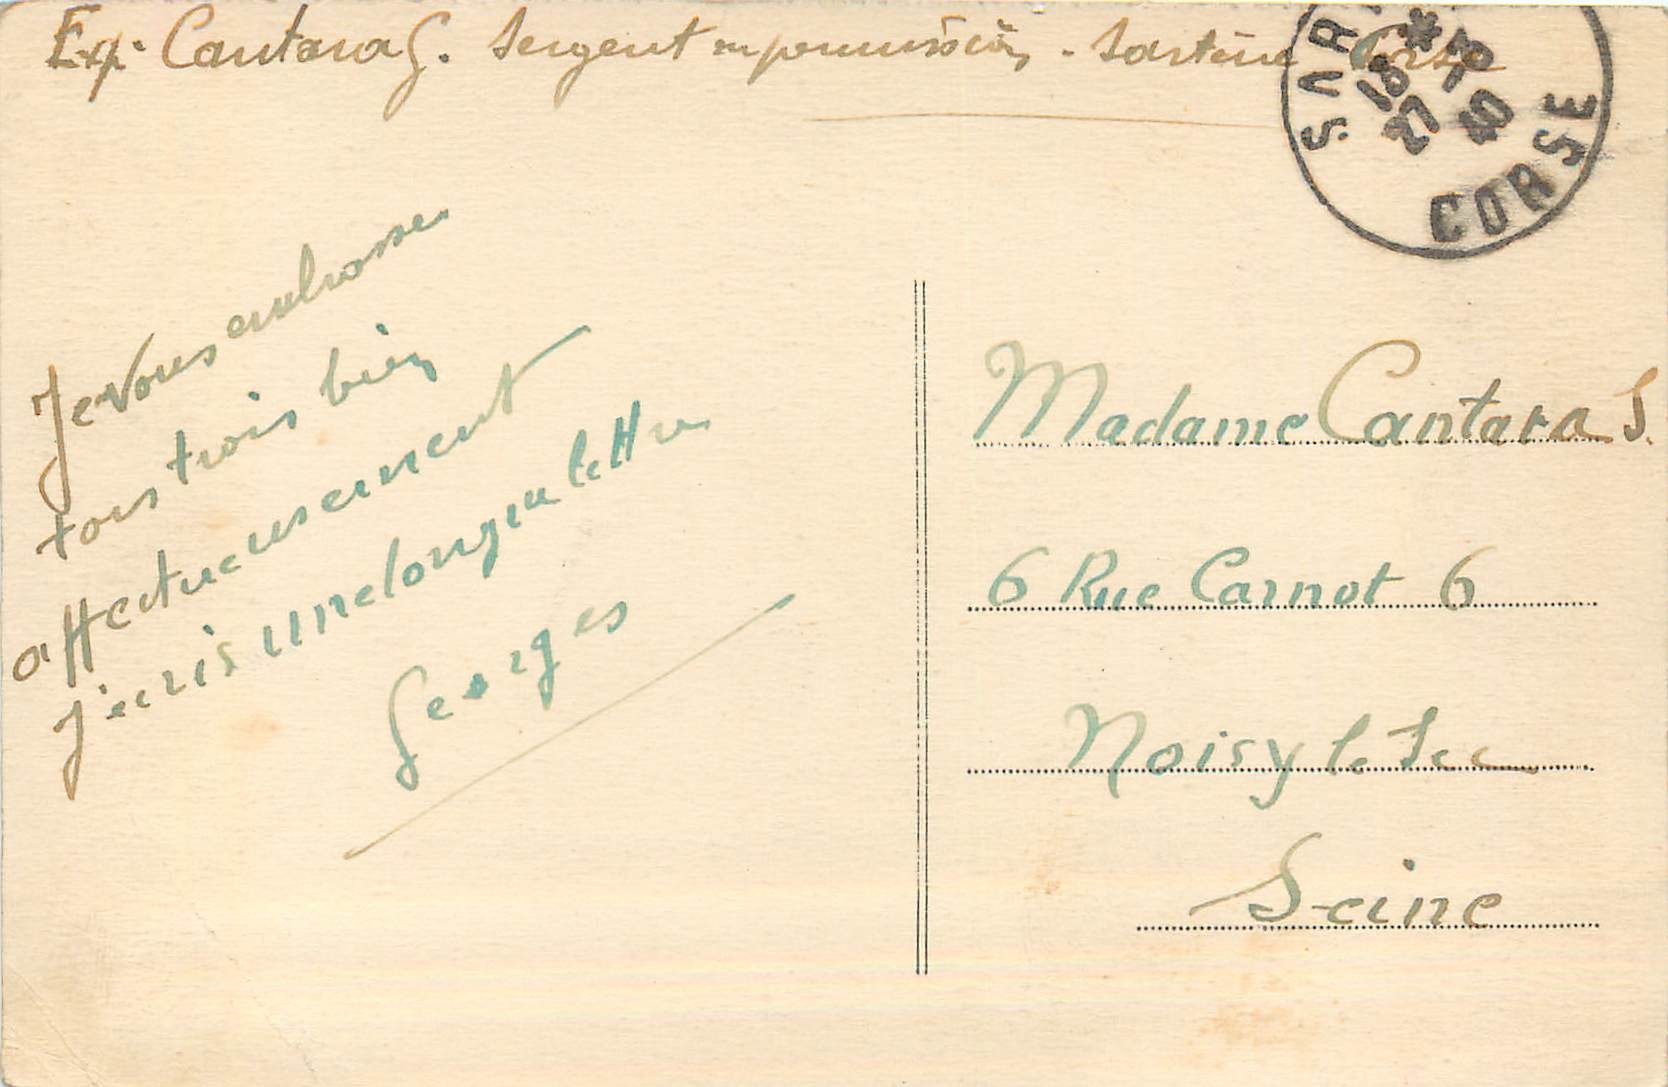 Exp. Cantara G. Sergent en permission - Sartène Corse
SAR
*
18
27 -3
40
CORSE
Je vous embrasse
tous trois bien
affectueusement
J'écris une longue lettre
Georges
Madame Cantara S.
6 Rue Carnot 6
Noisy le Sec
Seine